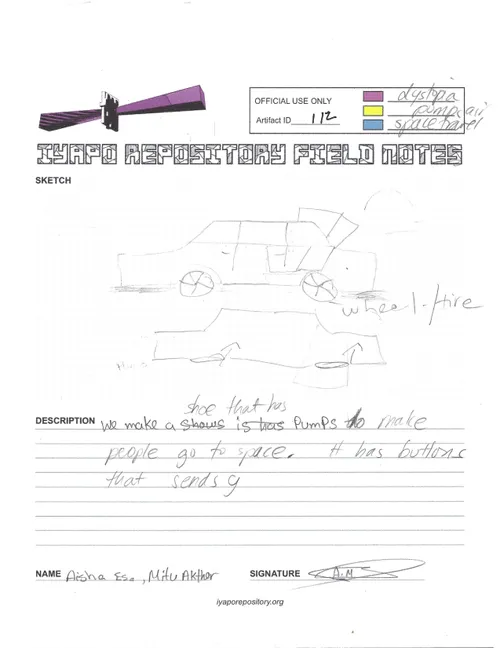 OFFICIAL USE ONLY
Artifact ID 112
dystopia
pump air
space travel
IYAPO REPOSITORY FIELD NOTES
SKETCH
wheel-tire
shoe that has
DESCRIPTION We make a shows is has PUMPS to make
people go to space. It has buttons
that sends
NAME Aisha Ess, Mitu Akther
SIGNATURE A.M
iyaporepository.org